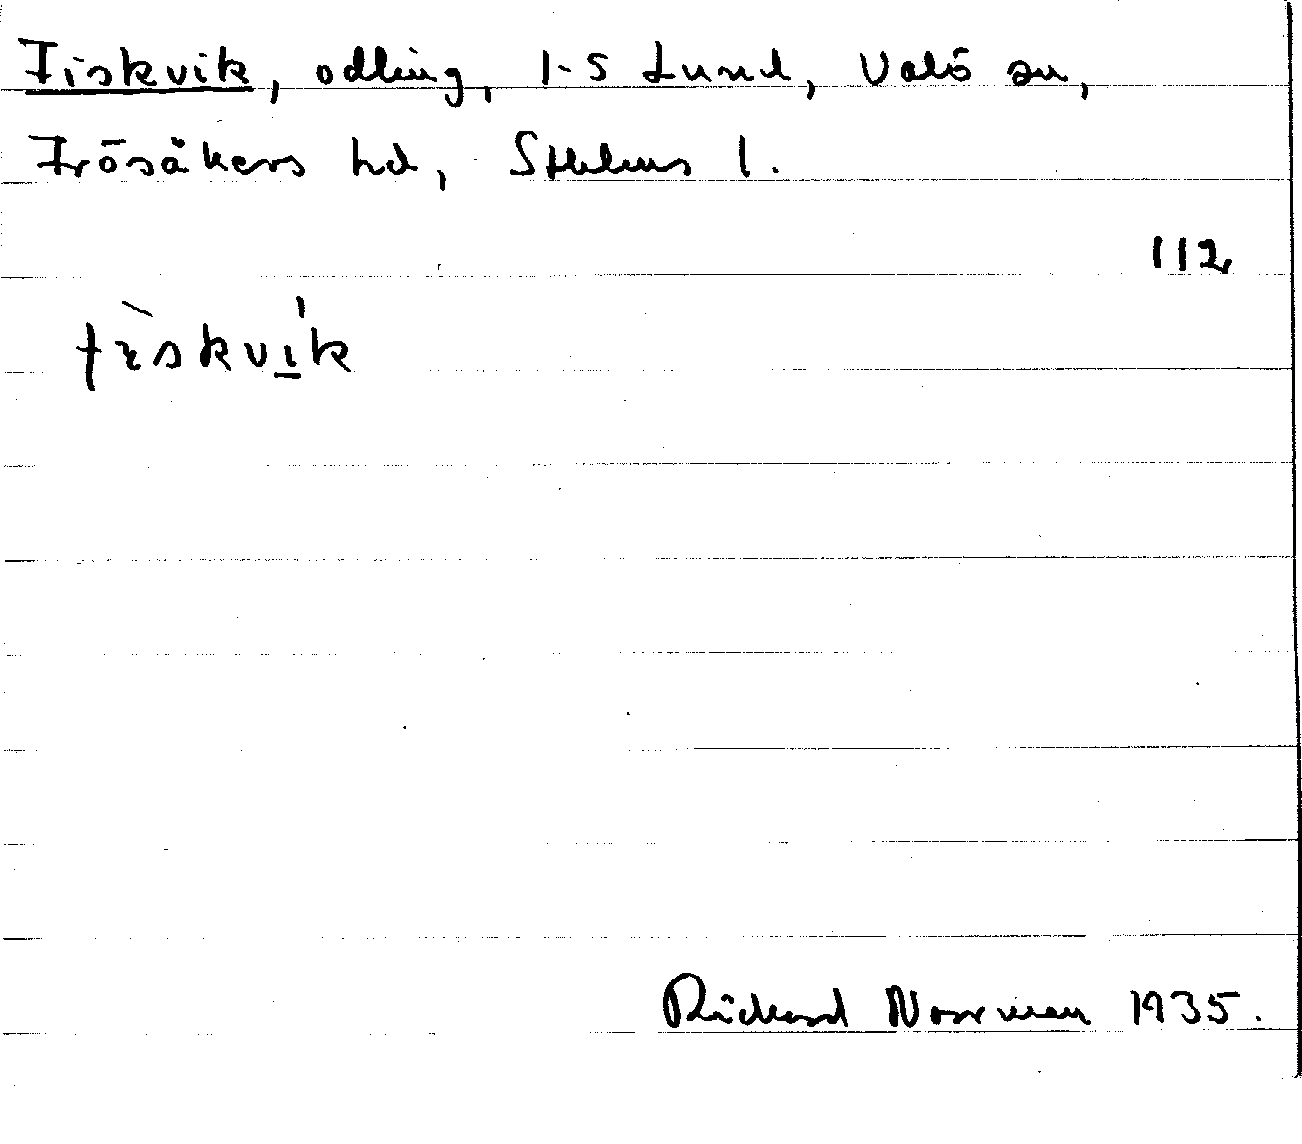 Fiskvik, odling, 1-5 Lund, Valö sn,
Frösåkers hd, Sthlms l.
112
fìskví̲k
Rickard Norrman 1935.